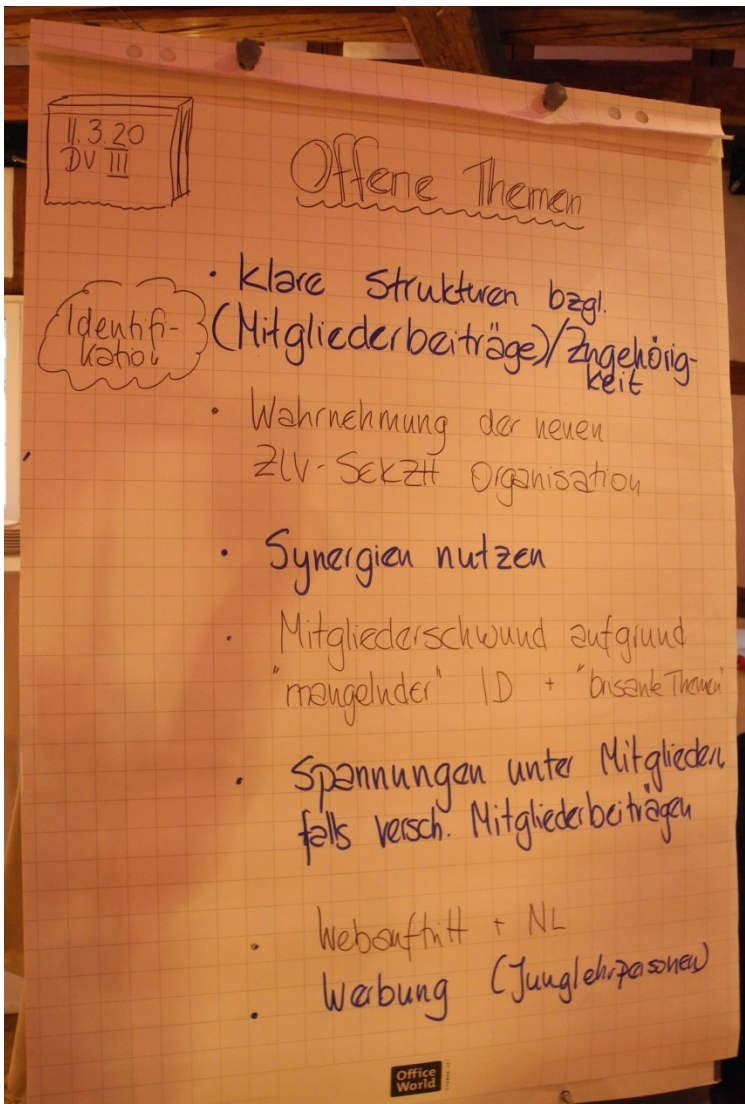 11.3.20
DV III
Offene Themen
• klare Strukturen bzgl.
(Mitgliederbeiträge)/Zugehörig-
keit
Identifi-
kation
• Wahrnehmung der neuen
ZLV-SekZH Organisation
• Synergien nutzen
• Mitgliederschwund aufgrund
"mangelnder" ID + "brisante Themen"
• Spannungen unter Mitgliedern,
falls versch. Mitgliederbeiträgen
• Webauftritt + NL
• Werbung (Junglehrpersonen)
Office
World